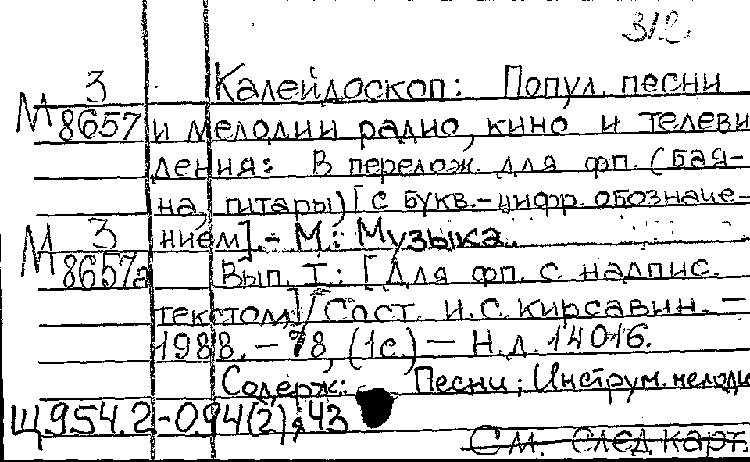 312
3 Калейдоскоп: Попул. песни
М 8657 и мелодии радио, кино и телеви
дения: В перелож. для фп. (бая-
на, гитары) [с букв.-цифр. обозначе-
3 нием]. - М.: Музыка.
М 8657а Вып. I: [Для фп. с надпис.
текстом] / Сост. И.С. Кирсавин. -
1988. - 78, (1с.) - Н.д. 14016.
Содерж: Песни; Инструм. мелоди
Щ954.2-094(2)я43
См. след карт.